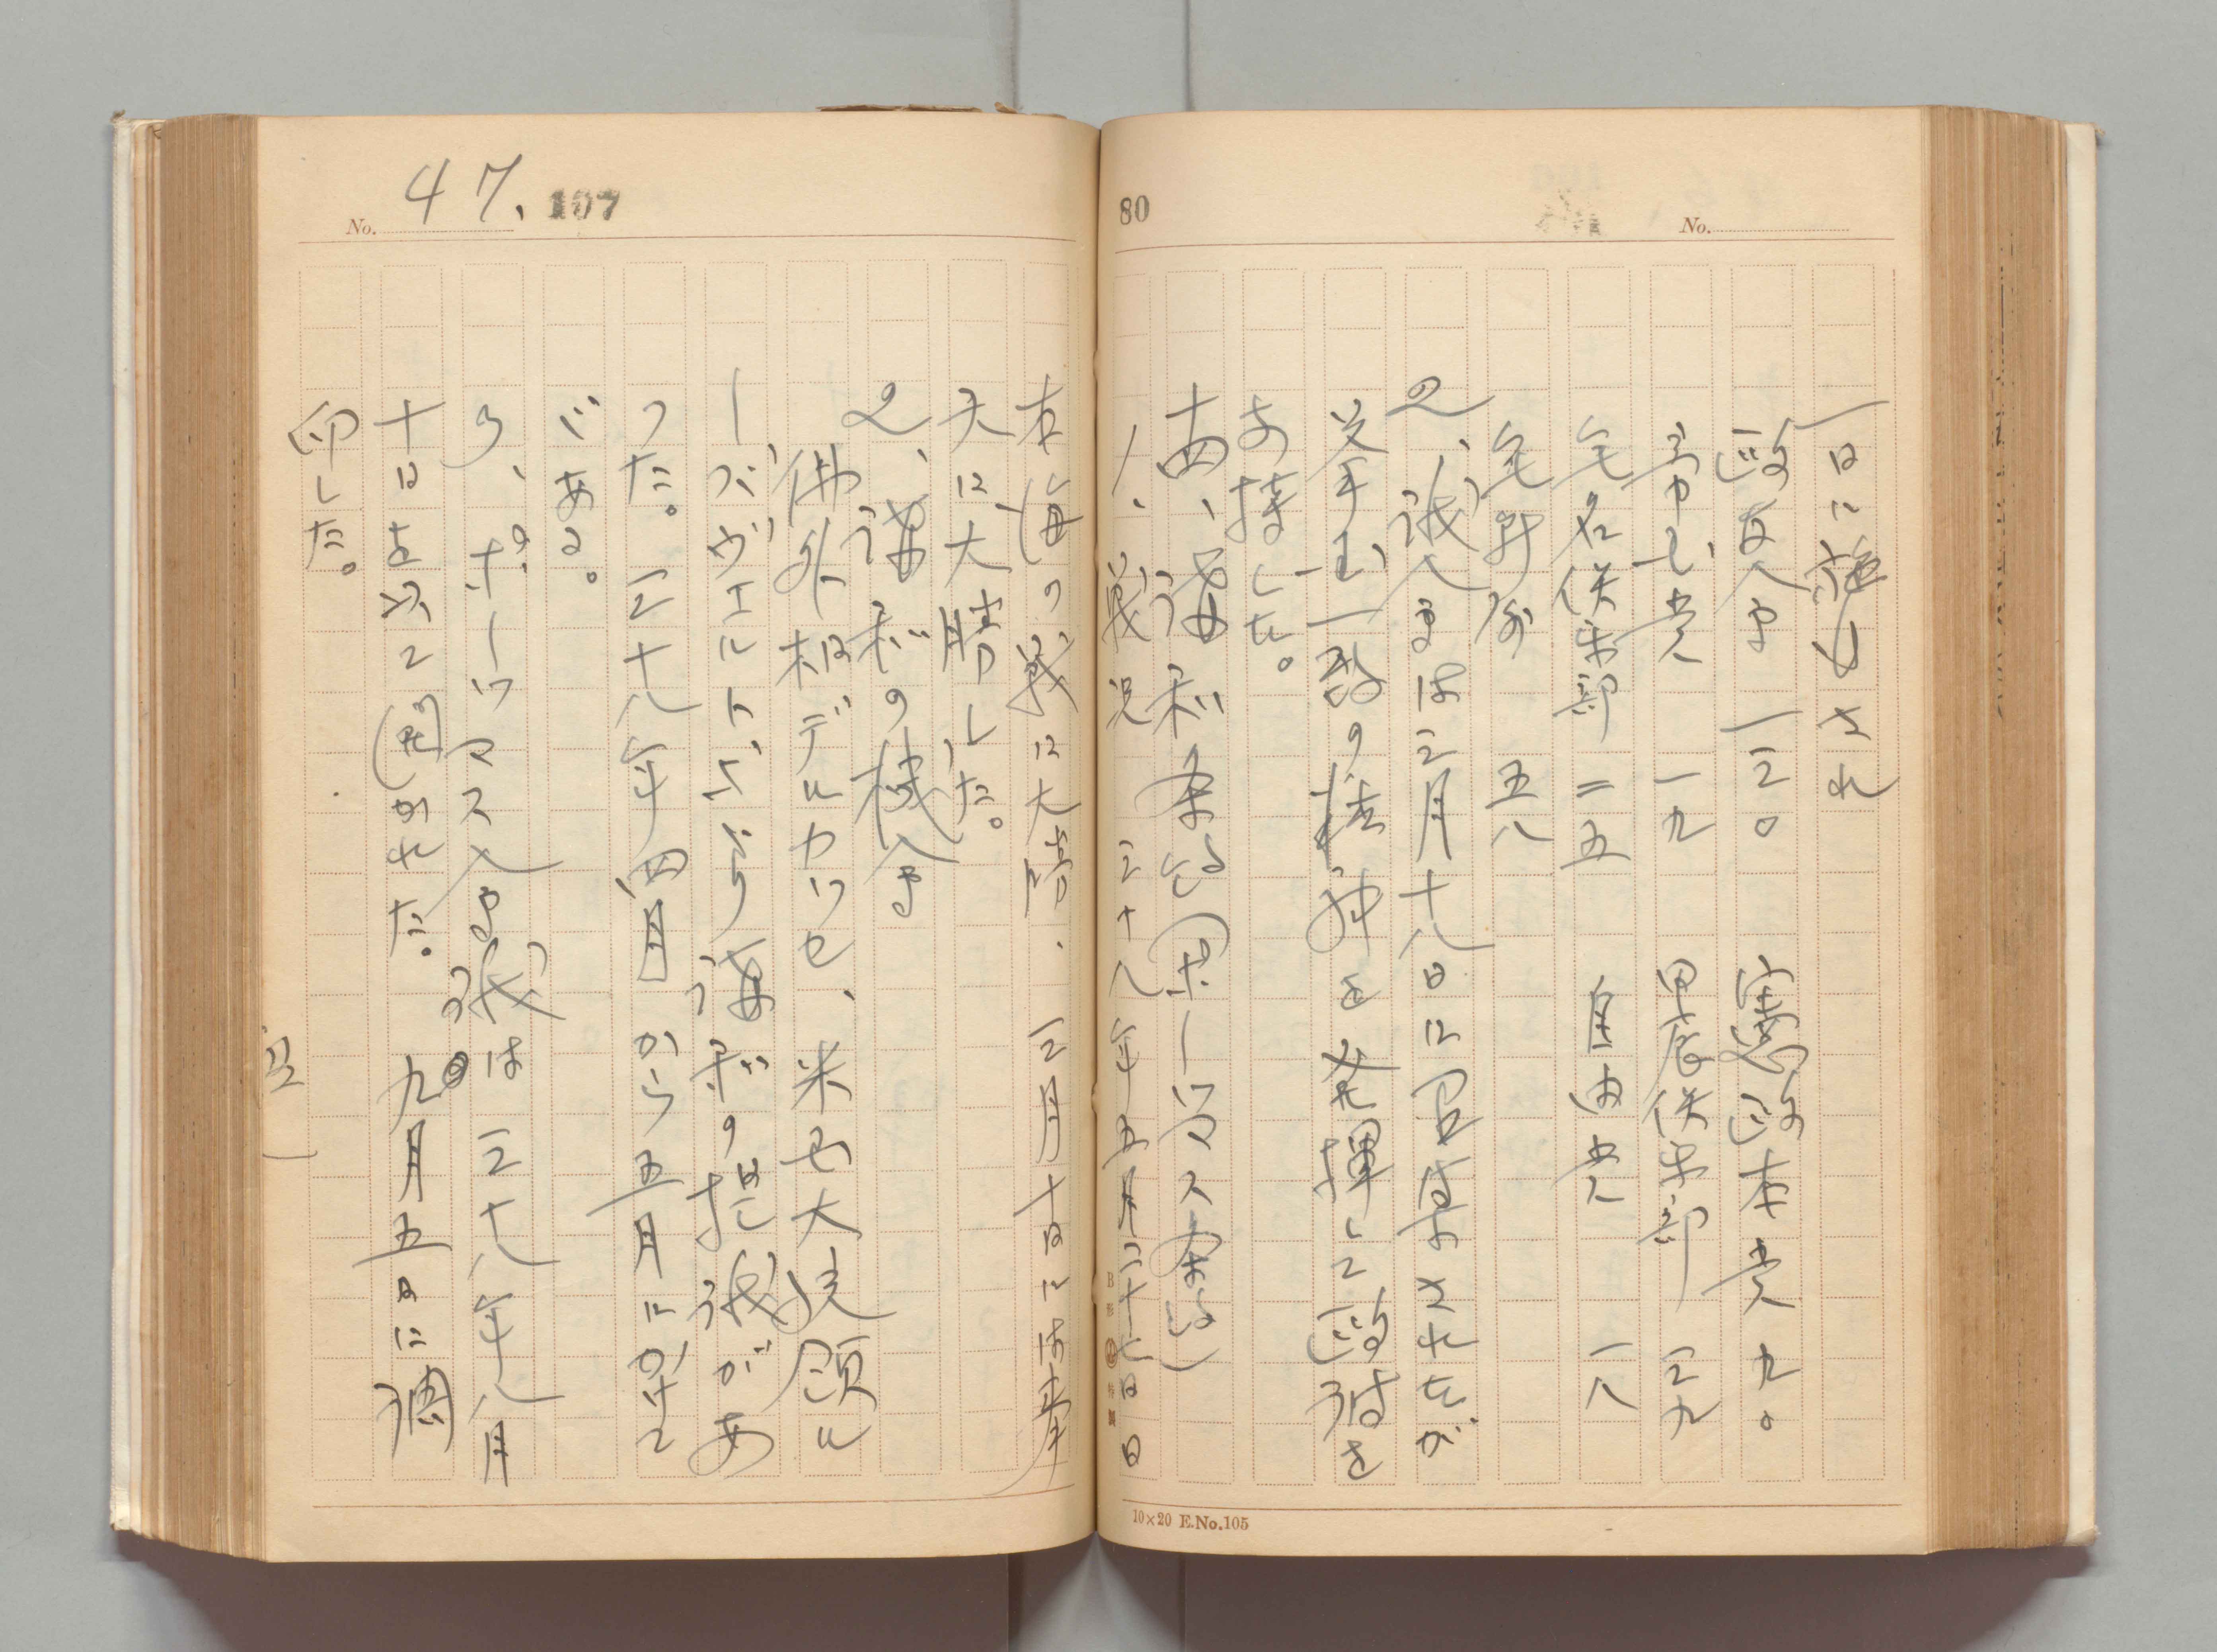 80
No.
一日に施行され
政友会 一三〇 憲政本党 九〇
帝国党 一九 甲辰倶楽部 三九
無名倶楽部 二五 自由党 一八
無所属 五八
2、議会は三月十八日に召集されたが
挙国一致の精神を発揮して政府を
支持した。
十四、講和条約(ポーツマス条約)
1、戦況 三十八年五月二十七日日
10×20 E.No.105
No. 47. 107
本海の戦に大勝、三月十日には奉
天に大勝した。
2、講和の機会
佛外相デルカツセ、米セ大統領ル
ーズヴエルトにより講和の提議があ
つた。三十八年四月から五月にかけて
である。
3、ポーツマス会議は三十八年八月
十日より開かれた。九月五日に調
印した。